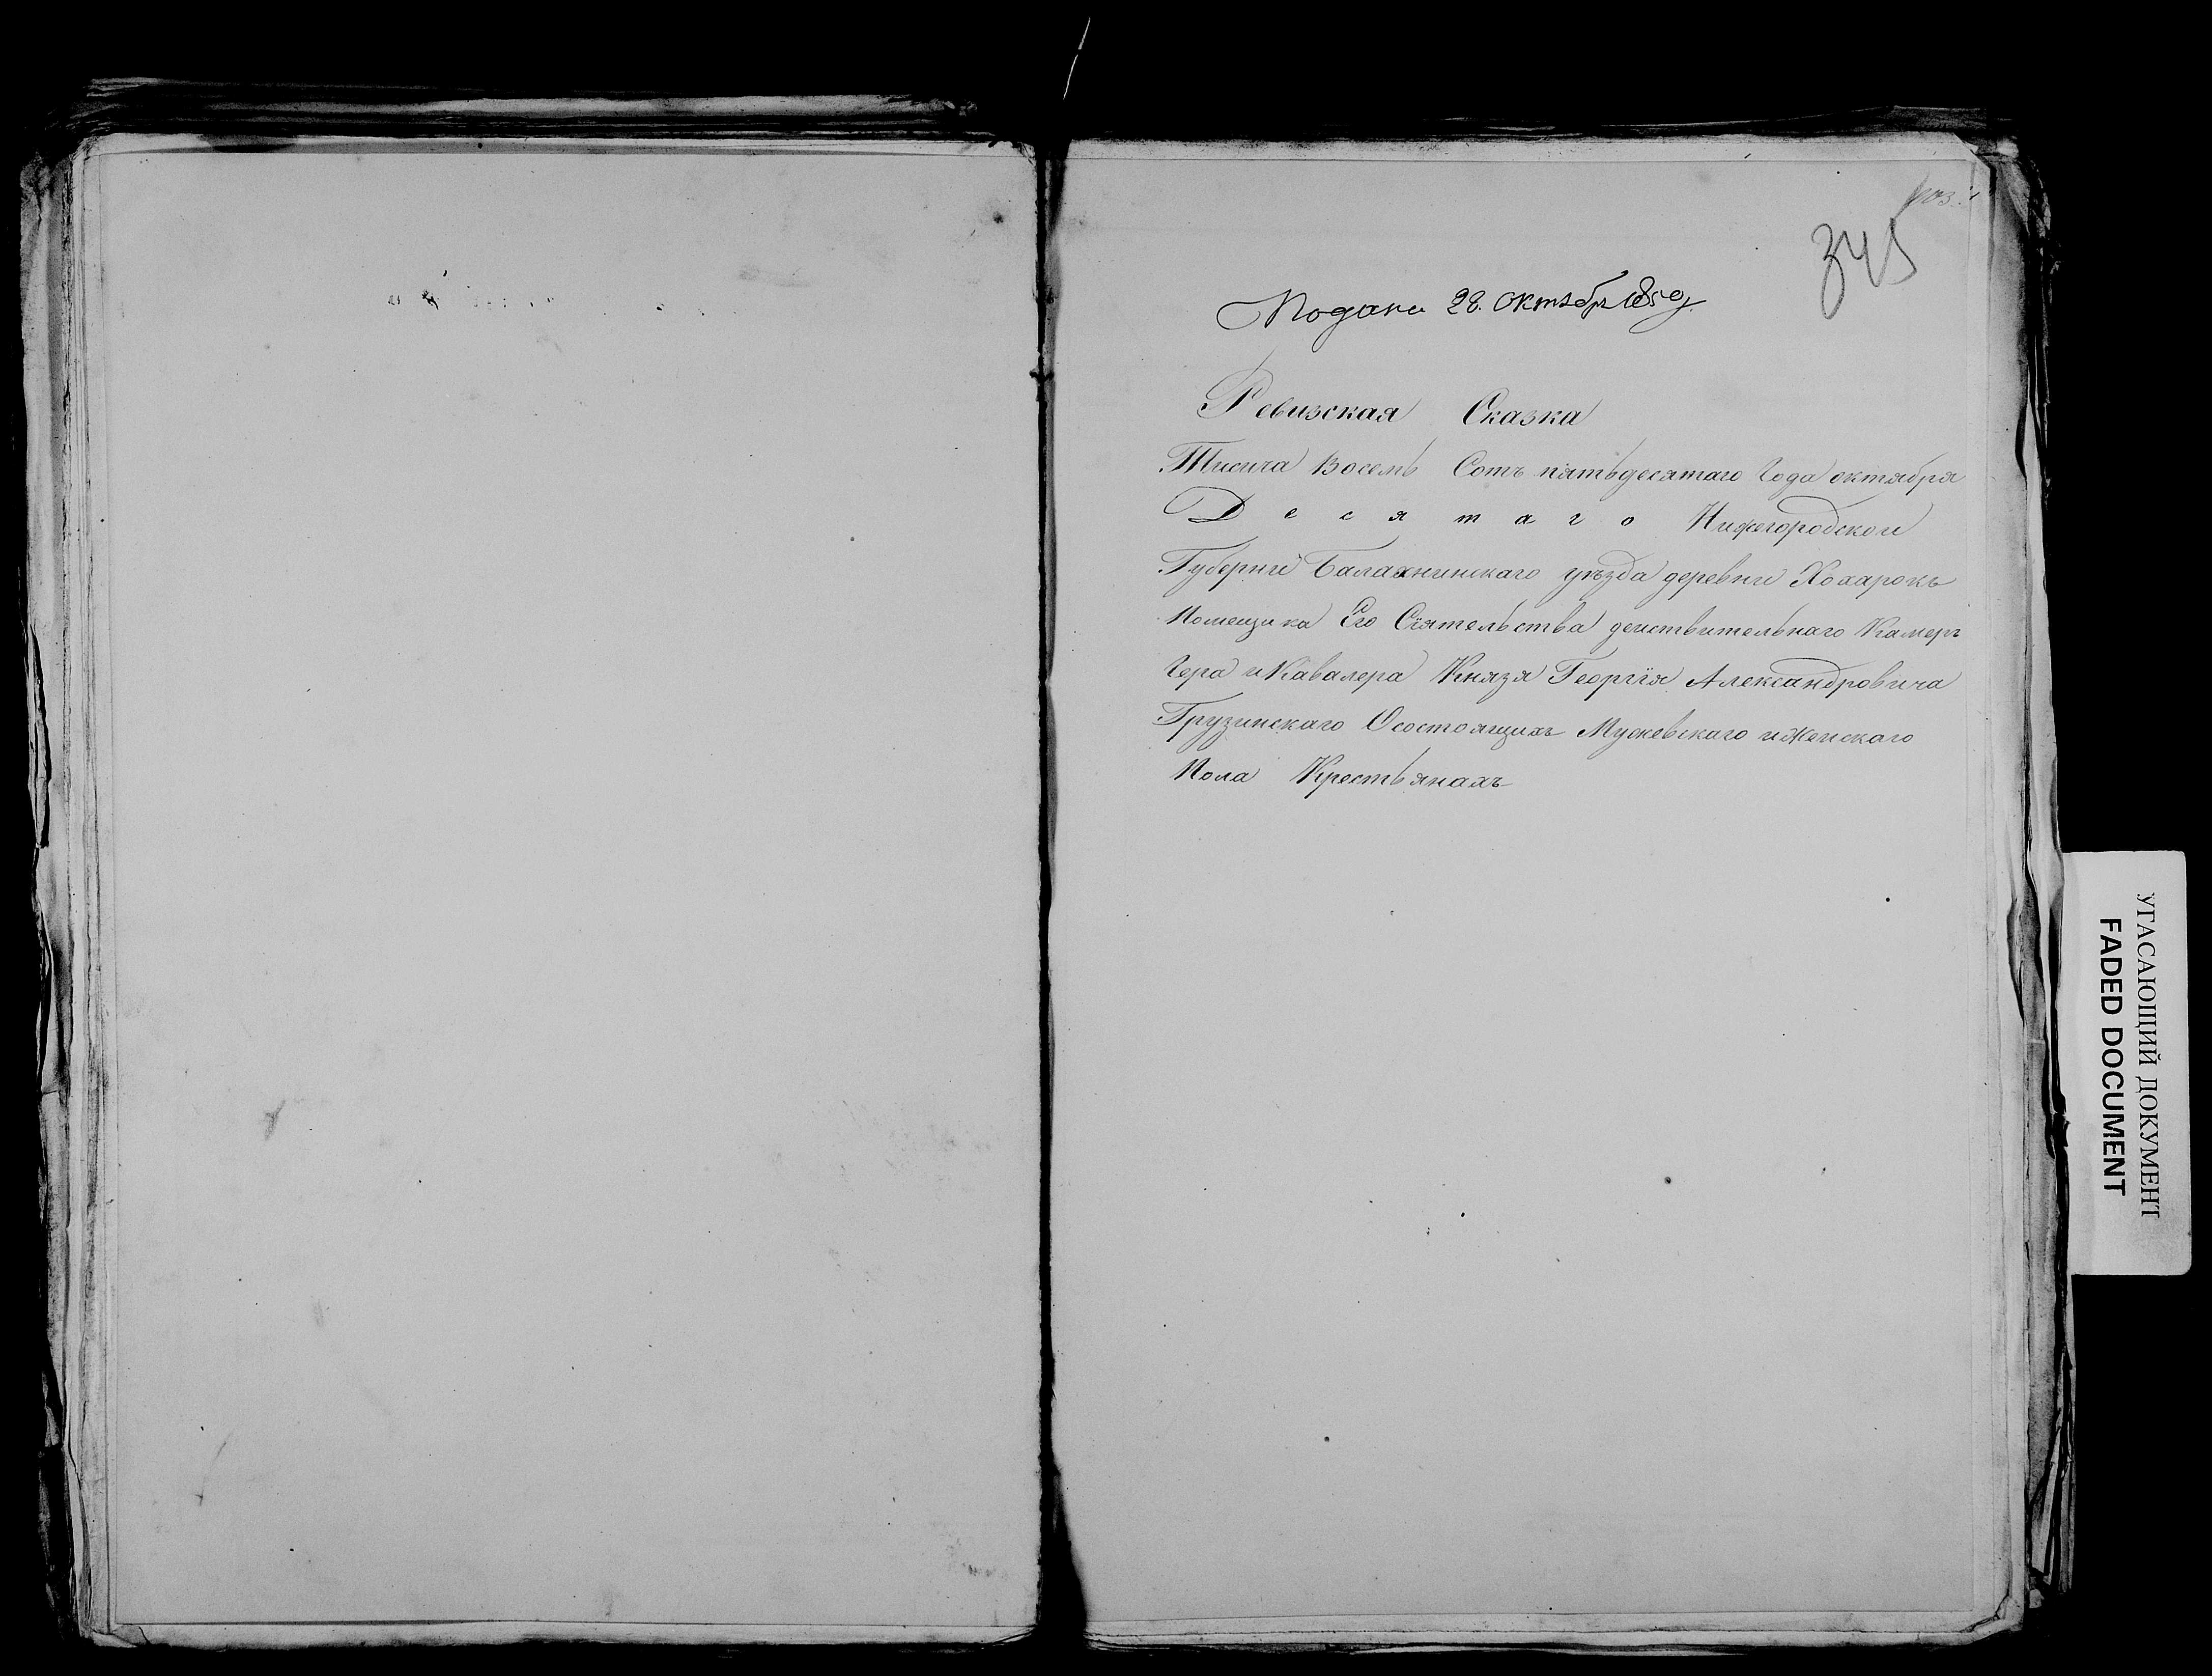 345
Подана 28. октябр 1850 г.
Ревизская Сказка
Тысича Восемь Сотъ пятьдесятаго Года октября
Десятаго Нижегородской
Губерніи Балахнинскаго уѣзда деревни Хохарокъ
Помещика Его Сіятельства действительнаго Камеръ
Гера и Кавалера Князя Георгія Александровича
Грузинскаго О состоящихъ Мужевскаго и Женскаго
Пола Крестьянахъ
УГАСАЮЩИЙ ДОКУМЕНТ
FADED DOCUMENT